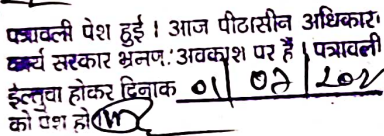 पत्रावली पेश हुई । आज पीठासीन अधिकारी
कार्य सरकार भ्रमण/अवकाश पर है । पत्रावली
ईल्तुवा होकर दिनाक 01/07/202
को पेश हो